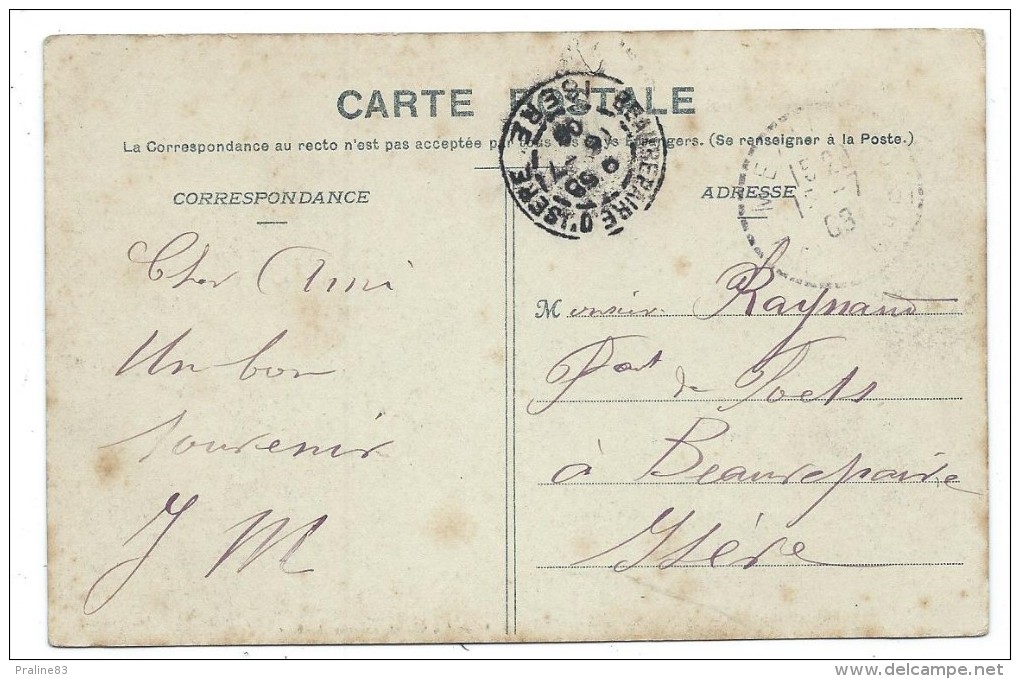 CARTE POSTALE
La Correspondance au recto n'est pas acceptée par tous les pays Étrangers. (Se renseigner à la Poste.)
CORRESPONDANCE
ADRESSE
BEAUREPAIRE D'ISERE
ISERE
08
Cher Ami
Un bon
souvenir
J M
Monsieur Raynaud
de
à Beaurepaire
Isère
Praline83
www.delcampe.net